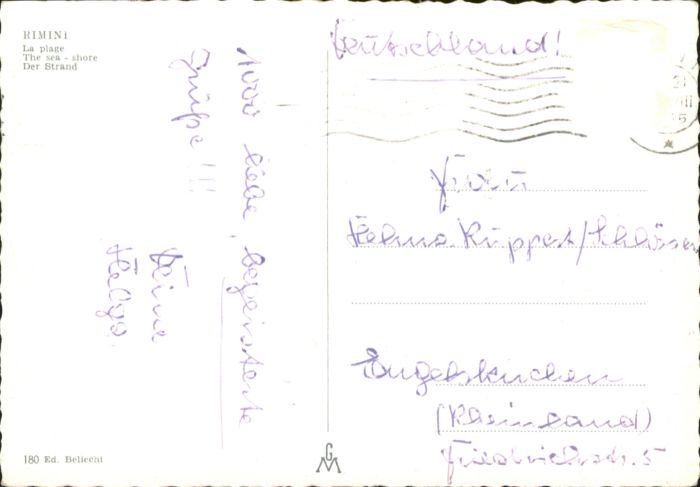 RIMINI
La plage
The sea - shore
Der Strand
1000 liebe, begeisterte
Grüße !!!
Deine
Helga.
Deutschland!
Helma Ruppert/Schlösser
Engelskirchen
(Rheinland)
Friedrichstr. 5
180 Ed. Beliecht
GM